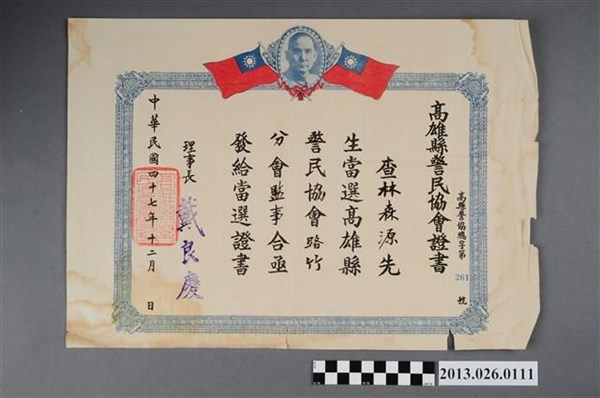 高雄縣警民協會證書
高縣警協總字第261號
查林森源先
生當選高雄縣
警民協會路竹
分會監事合亟
發給當選證書
理事長 戴良慶
中華民國四十七年十二月 日
2013.026.0111